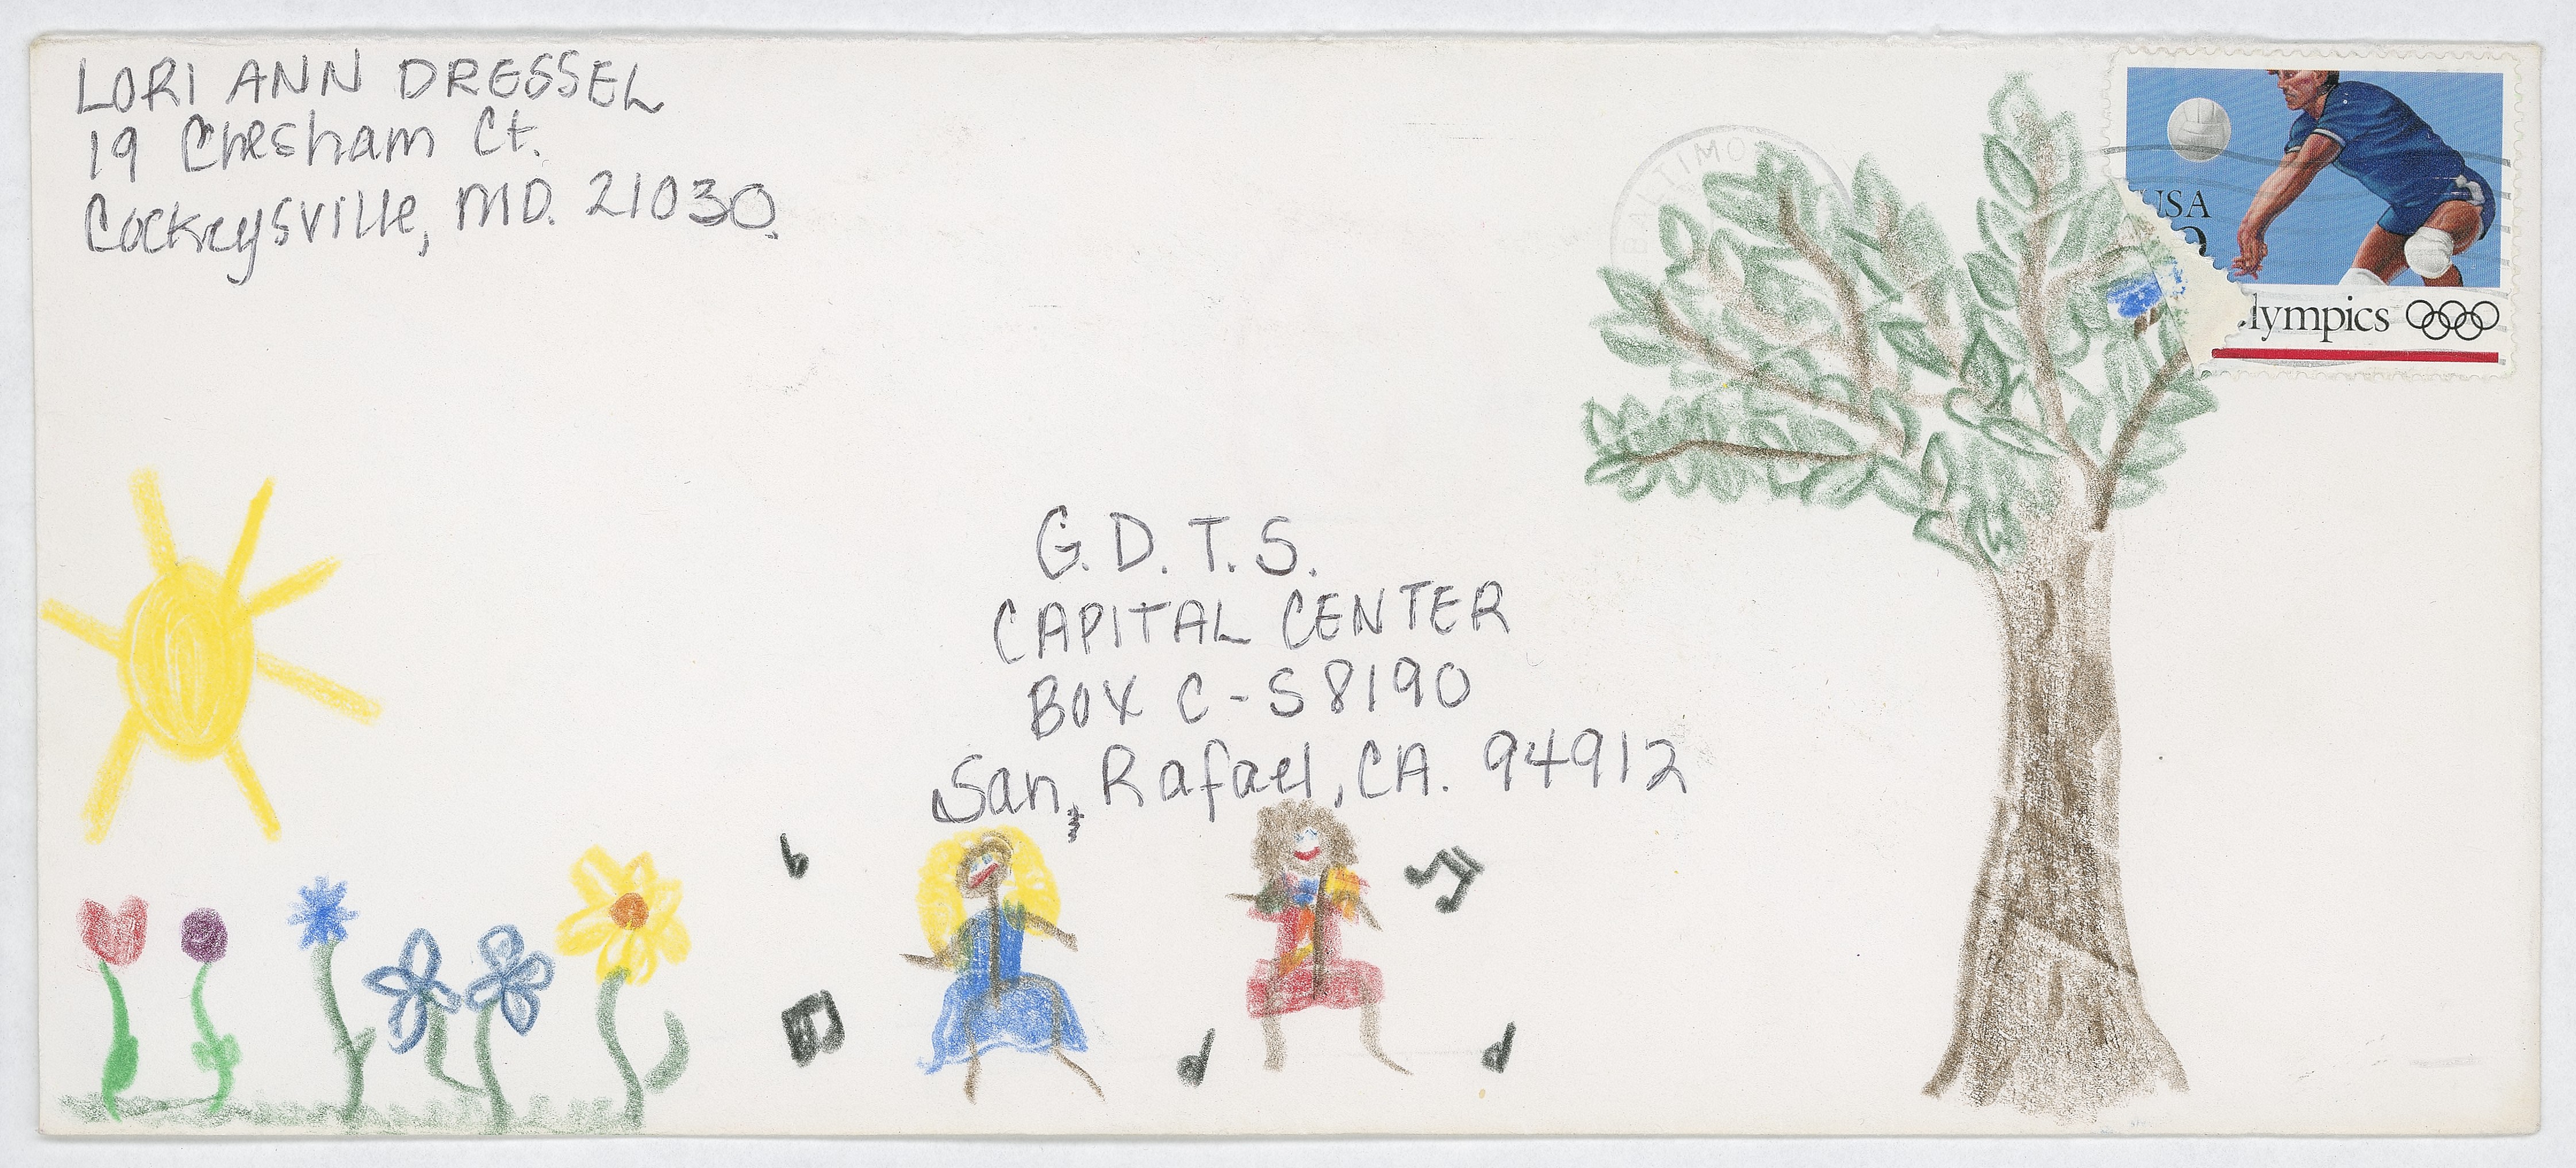 LORI ANN DRESSEL
19 Chesham Ct.
Cockeysville, MD. 21030
BALTIMO
USA
lympics
G.D.T.S.
CAPITAL CENTER
BOX C-S8190
San, Rafael, CA. 94912